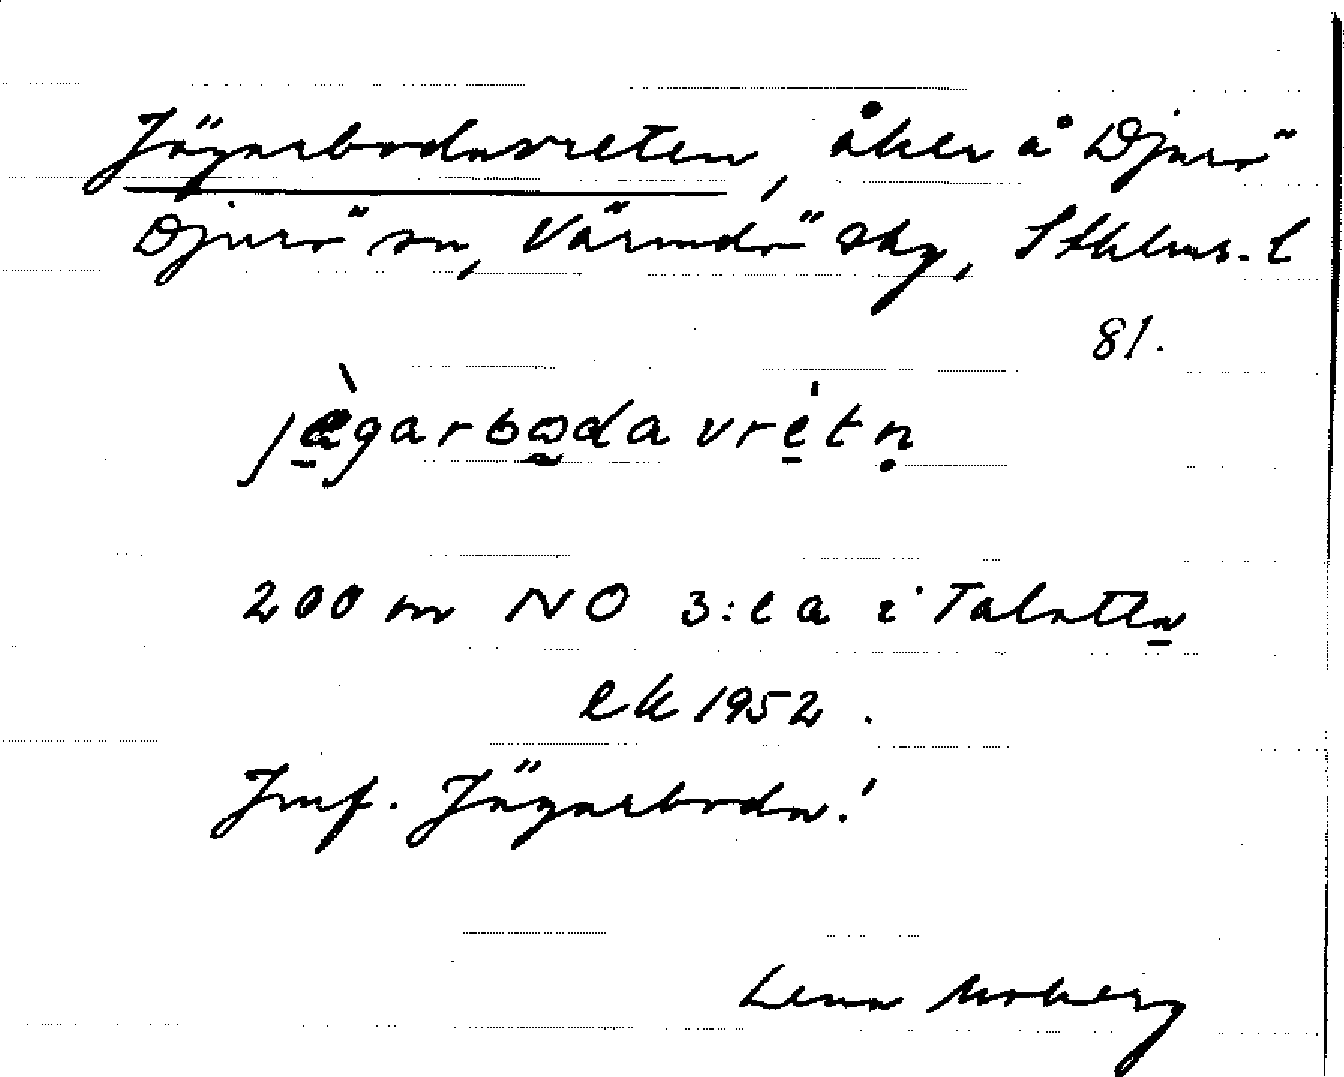 Jägarbodavreten, åker å Djurö
Djurö sn, Värmdö skg, Sthlms. l
81.
jægarbodavretn̥
200 m NO 3:ea i Talatta
ek 1952.
Jmf. Jägarboda!
Lena Moberg